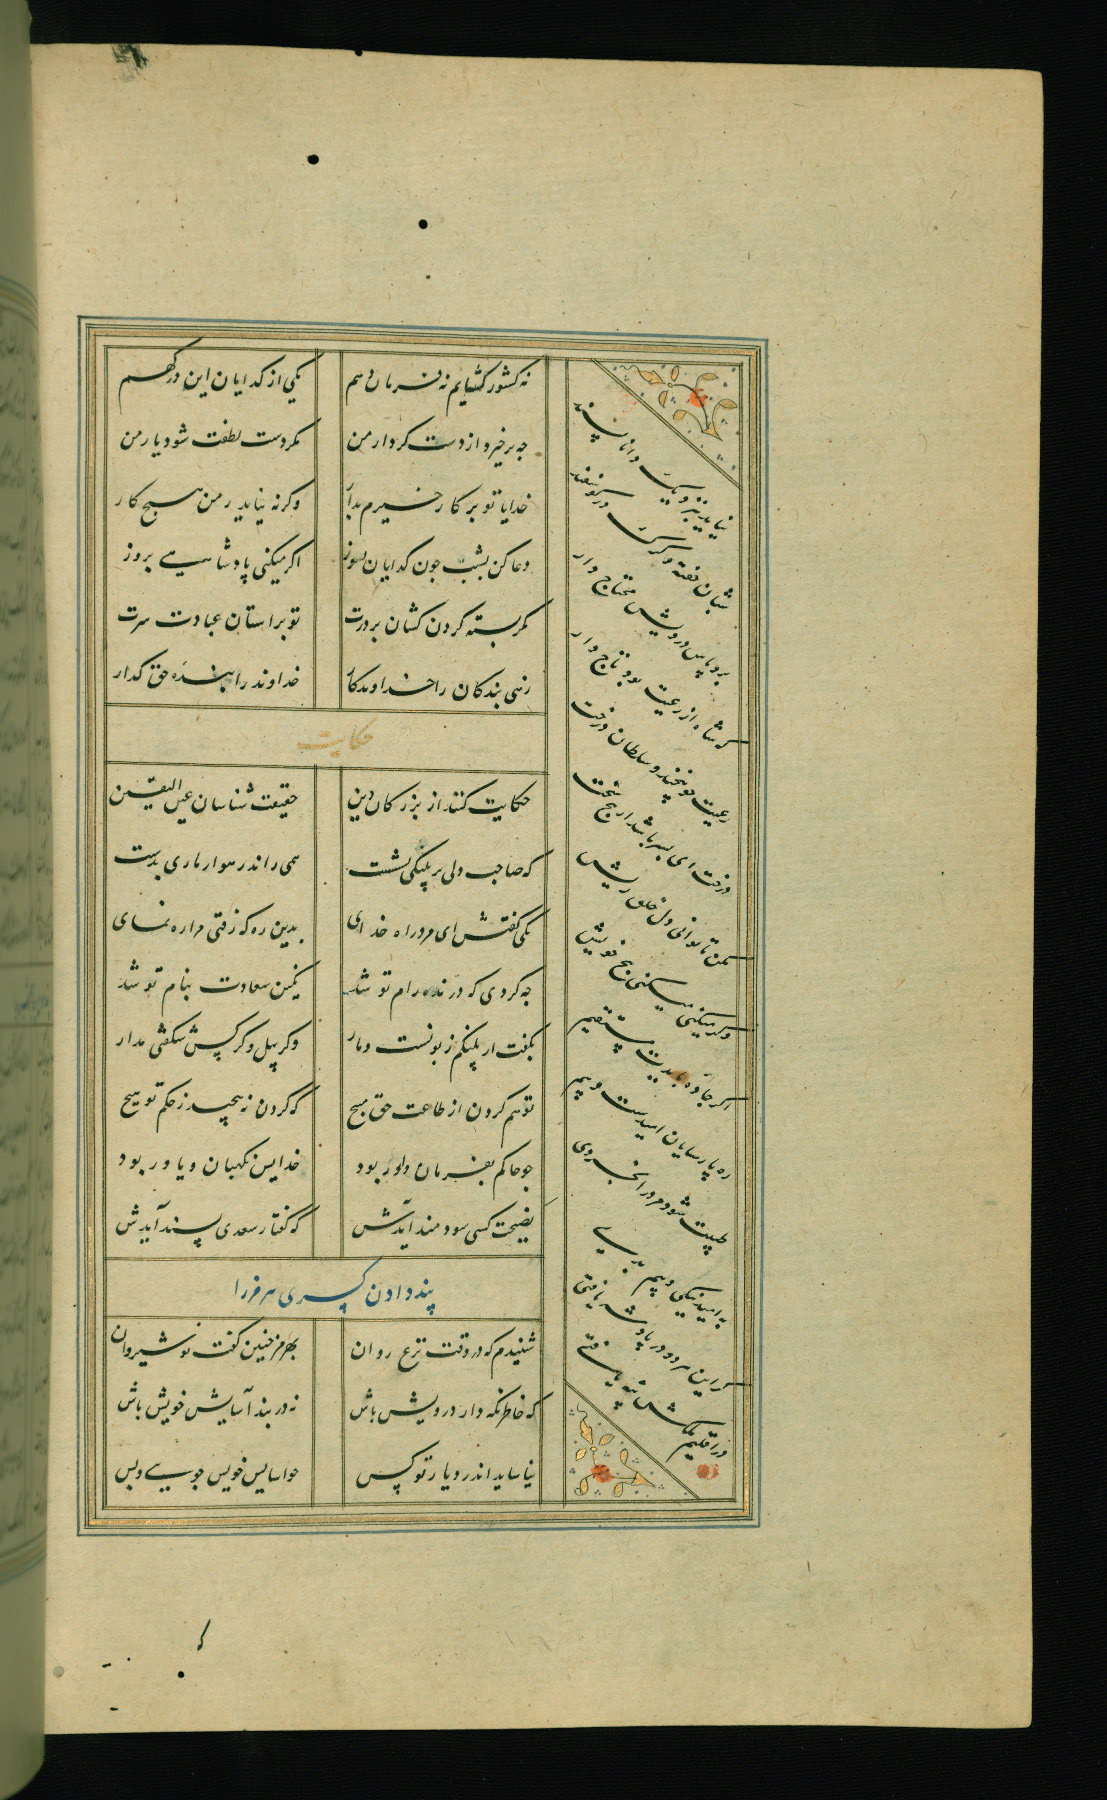 نه کشور گشایم نه فرمان دهم
یکی از گدایان این درگهم
چه برخیزد از دست کردار من
مگر دست لطفت شود یار من
خدایا تو بر کار خیرم بدار
وگرنه نیاید ز من هیچ کار
دعا کن بشب چون گدایان بسوز
اگر میکنی پادشاهی بروز
کمر بسته گردن کشان بر درت
تو بر آستان عبادت سرت
زهی بندگان را خداوندگار
خداوند را بنده حق گذار
حکایت
حکایت کنند از بزرگان دین
حقیقت شناسان عین الیقین
که صاحب دلی بر پلنگی نشست
همی راند رهوار ماری بدست
یکی گفتش ای مرد راه خدای
بدین ره که رفتی مرا ره نمای
چه کردی که درنده رام تو شد
نگین سعادت بنام تو شد
بگفت ار پلنگم زبونست و مار
وگر پیل و کرکس شگفتی مدار
تو هم گردن از طاعت حق مپیچ
که گردن نه پیچد ز حکم تو هیچ
چو حاکم بفرمان داور بود
خدایش نگهبان و یاور بود
نصیحت کسی سودمند آیدش
که گفتار سعدی پسند آیدش
پند دادن کسری هرمز را
شنیدم که در وقت نزع روان
بهرمز چنین گفت نوشیروان
که خاطر نگه دار درویش باش
نه در بند آسایش خویش باش
نیاساید اندر دیار تو کس
چو آسایش خویش جویی و بس
نیاید بنزدیک دانا پسند
شبان خفته و گرگ در گوسفند
برو پاس درویش محتاج دار
که شاه از رعیت بود تاج دار
رعیت چو بیخند و سلطان درخت
درخت ای پسر باشد از بیخ سخت
مکن تا توانی دل خلق ریش
وگر میکنی میکنی بیخ خویش
اگر جاده بایدت مستقیم
ره پارسایان امیدست و بیم
طبیعت شود مرد را بخردی
به امید نیکی و بیم بدی
گر این هر دو در پادشه یافتی
در اقلیم ملکش پنه یافتی